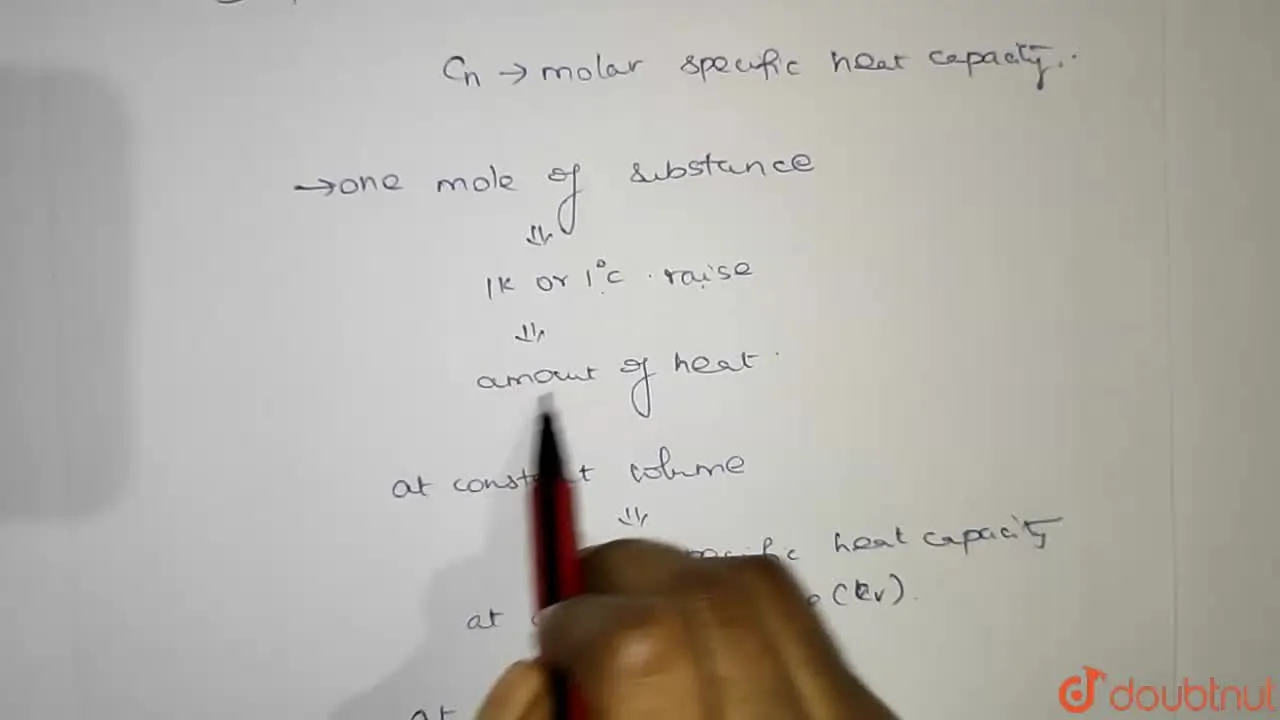 Cn → molar specific heat capacity.
→ one mole of substance
⇓
1K or 1°C raise
⇓
amount of heat
at constant volume
⇓
specific heat capacity
at (Cv).
at
doubtnut